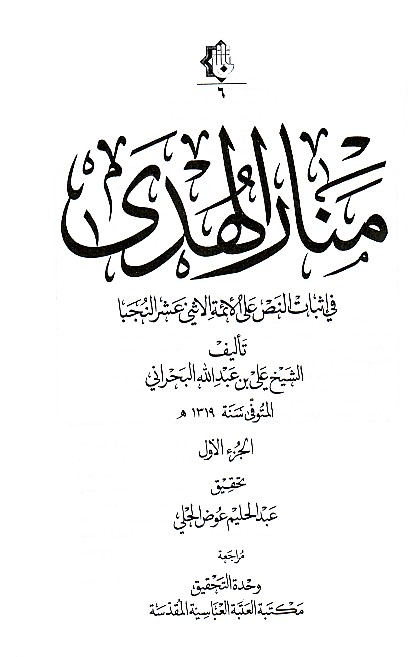 ٦
منار الهدى
في اثبات النص على الأئمة الاثني عشر النجبا
تأليف
الشيخ علي بن عبد الله البحراني
المتوفى سنة ١٣١٩ هـ
الجزء الأول
تحقيق
عبد الحليم عوض الحلي
مراجعة
وحدة التحقيق
مكتبة العتبة العباسية المقدسة